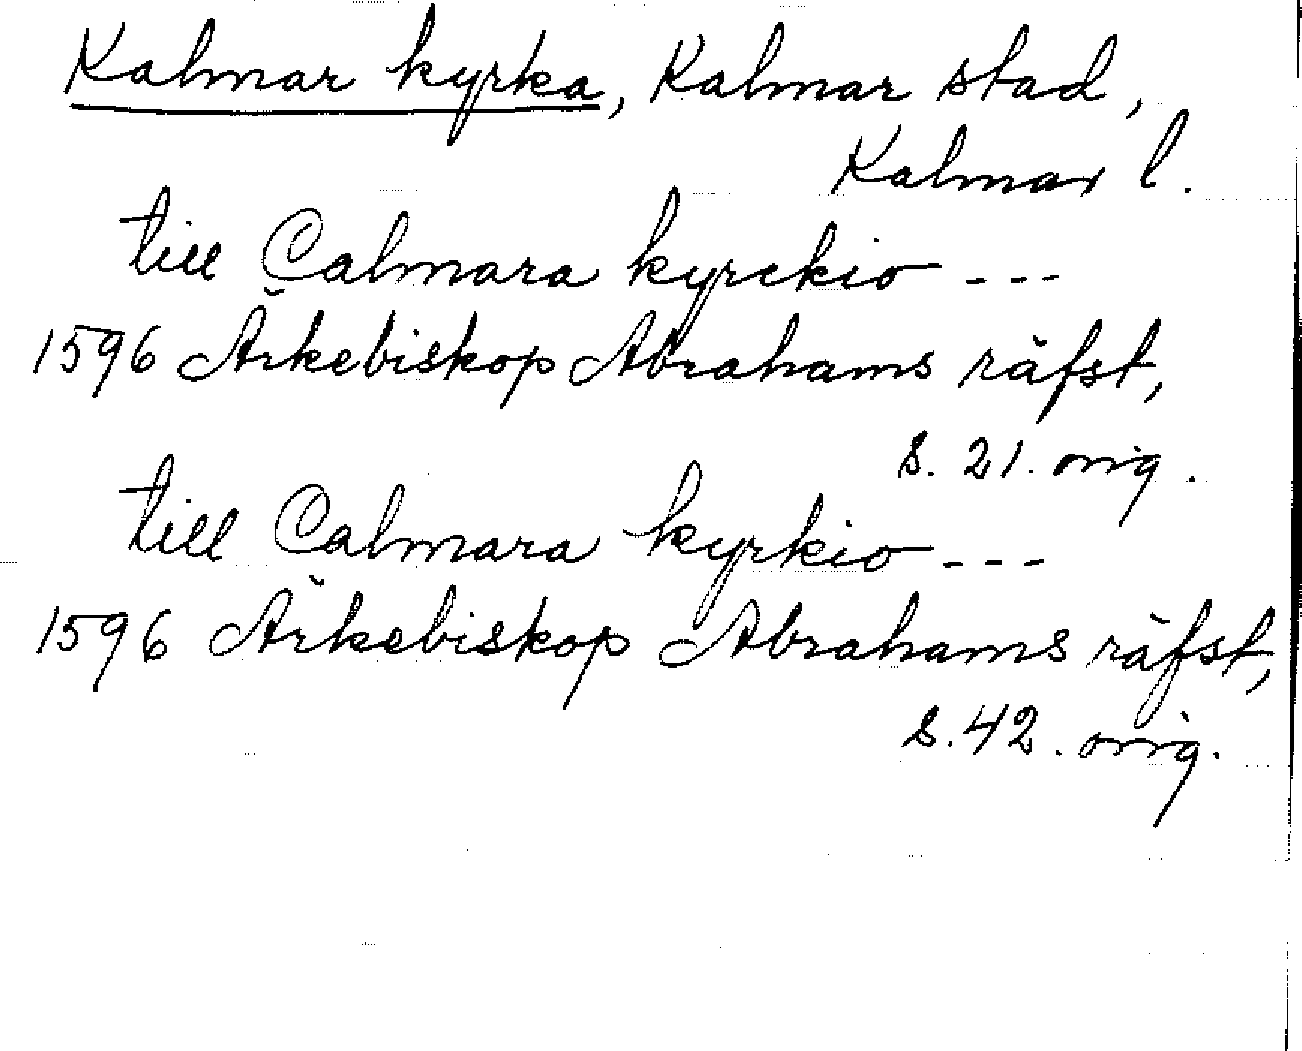 Kalmar kyrka, Kalmar stad,
Kalmar l.
till Calmara kyrckio ---
1596 Ärkebiskop Abrahams räfst,
s. 21. orig.
till Calmara kyrkio ---
1596 Ärkebiskop Abrahams räfst,
s. 42. orig.